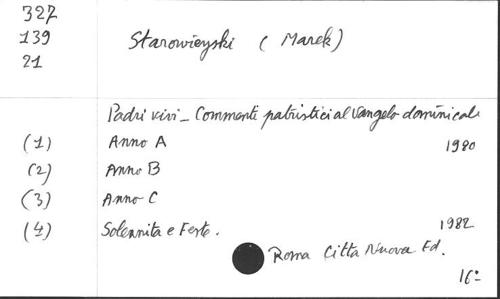 327
139 Starowieyski (Marek)
21
Padri vivi - Commenti patristici al Vangelo domenicale
(1) Anno A 1980
(2) Anno B
(3) Anno C
(4) Solennita e Feste. 1982
Roma Citta Nuova Ed.
16º